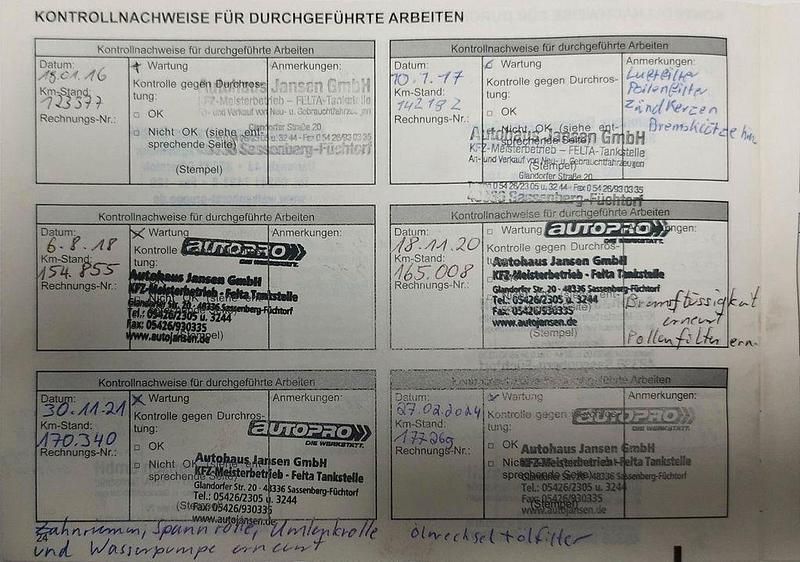 KONTROLLNACHWEISE FÜR DURCHGEFÜHRTE ARBEITEN
Kontrollnachweise für durchgeführte Arbeiten
Datum:
19.01.16
Km-Stand:
123577
Rechnungs-Nr.:
Wartung
Kontrolle gegen Durchros-
tung:
OK
Nicht OK (siehe ent-
sprechende Seite)
(Stempel)
Anmerkungen:
Autohaus Jansen GmbH
KFZ-Meisterbetrieb – FELTA-Tankstelle
An- und Verkauf von Neu- u. Gebrauchtfahrzeugen
Glandorfer Straße 20
0 54 26/23 05 u. 32 44 - Fax 0 54 26/93 03 35
48336 Sassenberg-Füchtorf
Kontrollnachweise für durchgeführte Arbeiten
Datum:
10.1.17
Km-Stand:
142192
Rechnungs-Nr.:
Wartung
Kontrolle gegen Durchros-
tung:
OK
Nicht OK (siehe ent-
sprechende Seite)
(Stempel)
Anmerkungen:
Luftfilter
Pollenfilter
Zündkerzen
Autohaus Jansen GmbH
KFZ-Meisterbetrieb – FELTA-Tankstelle
An- und Verkauf von Neu- u. Gebrauchtfahrzeugen
Glandorfer Straße 20
0 54 26/23 05 u. 32 44 - Fax 0 54 26/93 03 35
48336 Sassenberg-Füchtorf
Kontrollnachweise für durchgeführte Arbeiten
Datum:
6.8.18
Km-Stand:
154.855
Rechnungs-Nr.:
Wartung
Kontrolle
tung:
Anmerkungen:
AUTOPRO
DIE WERKSTATT.
Autohaus Jansen GmbH
KFZ-Meisterbetrieb - Felta Tankstelle
Glandorfer Str. 20 - 48336 Sassenberg-Füchtorf
Tel.: 05426/2305 u. 3244
Fax: 05426/930335
www.autojansen.de
Kontrollnachweise für durchgeführte Arbeiten
Datum:
18.11.20
Km-Stand:
165.008
Rechnungs-Nr.:
Wartung
Kontrolle gegen Durchros-
tung:
(Stempel)
Anmerkungen:
AUTOPRO
DIE WERKSTATT.
Autohaus Jansen GmbH
KFZ-Meisterbetrieb - Felta Tankstelle
Glandorfer Str. 20 - 48336 Sassenberg-Füchtorf
Tel.: 05426/2305 u. 3244
Fax: 05426/930335
www.autojansen.de
Bremsflüssigkeit
erneurt
Pollenfilter ern.
Kontrollnachweise für durchgeführte Arbeiten
Datum:
30.11.21
Km-Stand:
170.340
Rechnungs-Nr.:
Wartung
Kontrolle gegen Durchros-
tung:
OK
Nicht OK (siehe ent-
sprechende Seite)
(Stempel)
Anmerkungen:
AUTOPRO
DIE WERKSTATT.
Autohaus Jansen GmbH
KFZ-Meisterbetrieb - Felta Tankstelle
Glandorfer Str. 20 - 48336 Sassenberg-Füchtorf
Tel.: 05426/2305 u. 3244
Fax: 05426/930335
www.autojansen.de
Zahnriemen, Spannrolle, Umlenkrolle
und Wasserpumpe erneurt
Kontrollnachweise für durchgeführte Arbeiten
Datum:
27.02.2024
Km-Stand:
177269
Rechnungs-Nr.:
Wartung
Kontrolle gegen
tung:
OK
Nicht
sprechende
(Stempel)
Anmerkungen:
AUTOPRO
DIE WERKSTATT.
Autohaus Jansen GmbH
KFZ-Meisterbetrieb - Felta Tankstelle
Glandorfer Str. 20 - 48336 Sassenberg-Füchtorf
Tel.: 05426/2305 u. 3244
Fax: 05426/930335
www.autojansen.de
Ölwechsel + ölfilter
24